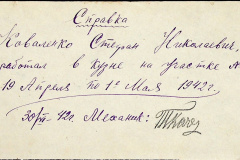 Справка
Коваленко Степан Николаевич,
работал в кузне на участке №
19 Апреля по 1ое Мая 1942г.
Механик: